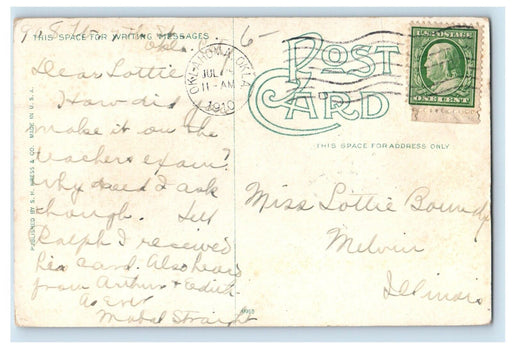 THIS SPACE FOR WRITING MESSAGES
Okl.
Dear Lottie
How did
make it on the
teachers exam?
Why need I ask
though. Tell
Ralph I received
his card. Also hears
from Arthur & Edith.
As Ever
Mabel Straight
PUBLISHED BY S. H. KRESS & CO. MADE IN U.S.A.
OKLAHOMA, OKLA.
JUL
11-AM
1910
6-
POST
CARD
U.S. POSTAGE
ONE CENT
THIS SPACE FOR ADDRESS ONLY
Miss Lottie Boundy
Melvin
Illinois